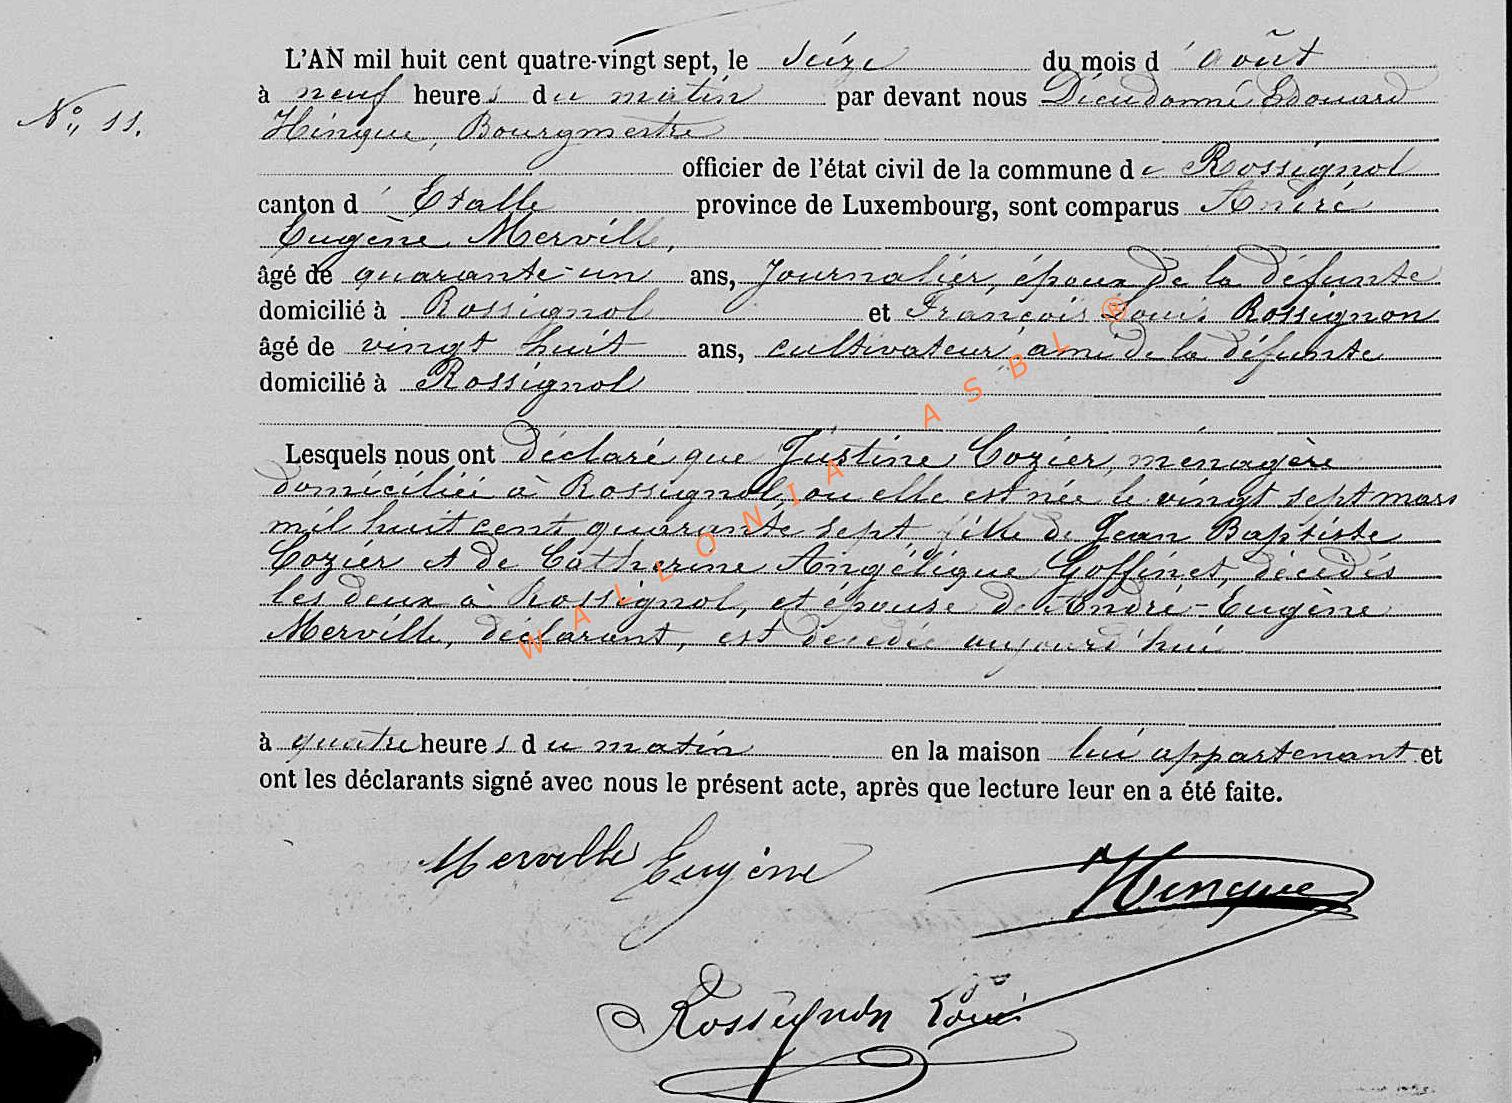 L'AN mil huit cent quatre-vingt sept, le seize du mois d'août
N° 11.
à neuf heures du matin par devant nous Dieudonné Edouard
Hinque, Bourgmestre
officier de l'état civil de la commune de Rossignol
canton d'Etalle province de Luxembourg, sont comparus André
Eugène Merville,
âgé de quarante-un ans, Journalier, époux de la défunte
domicilié à Rossignol et François Louis Rossignon
âgé de vingt huit ans, cultivateur, ami de la défunte
domicilié à Rossignol
Lesquels nous ont déclaré que Justine Cozier, ménagère
domiciliée à Rossignol, ou elle est née le vingt sept mars
mil huit cent quarante sept, fille de Jean Baptiste
Cozier et de Catherine Angélique Goffinet, décédés
les deux à Rossignol, et épouse de André-Eugène
Merville, déclarant, est décédée aujourd'hui
à quatre heures du matin en la maison lui appartenant et
ont les déclarants signé avec nous le présent acte, après que lecture leur en a été faite.
Merville Eugène
Hinque
Rossignon Louis
WALLONIA ASBL ®